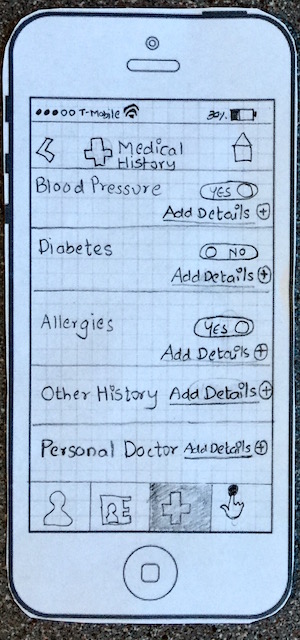 T-Mobile 30%
Medical
History
Blood Pressure YES
Add Details
Diabetes NO
Add Details
Allergies YES
Add Details
Other History Add Details
Personal Doctor Add Details